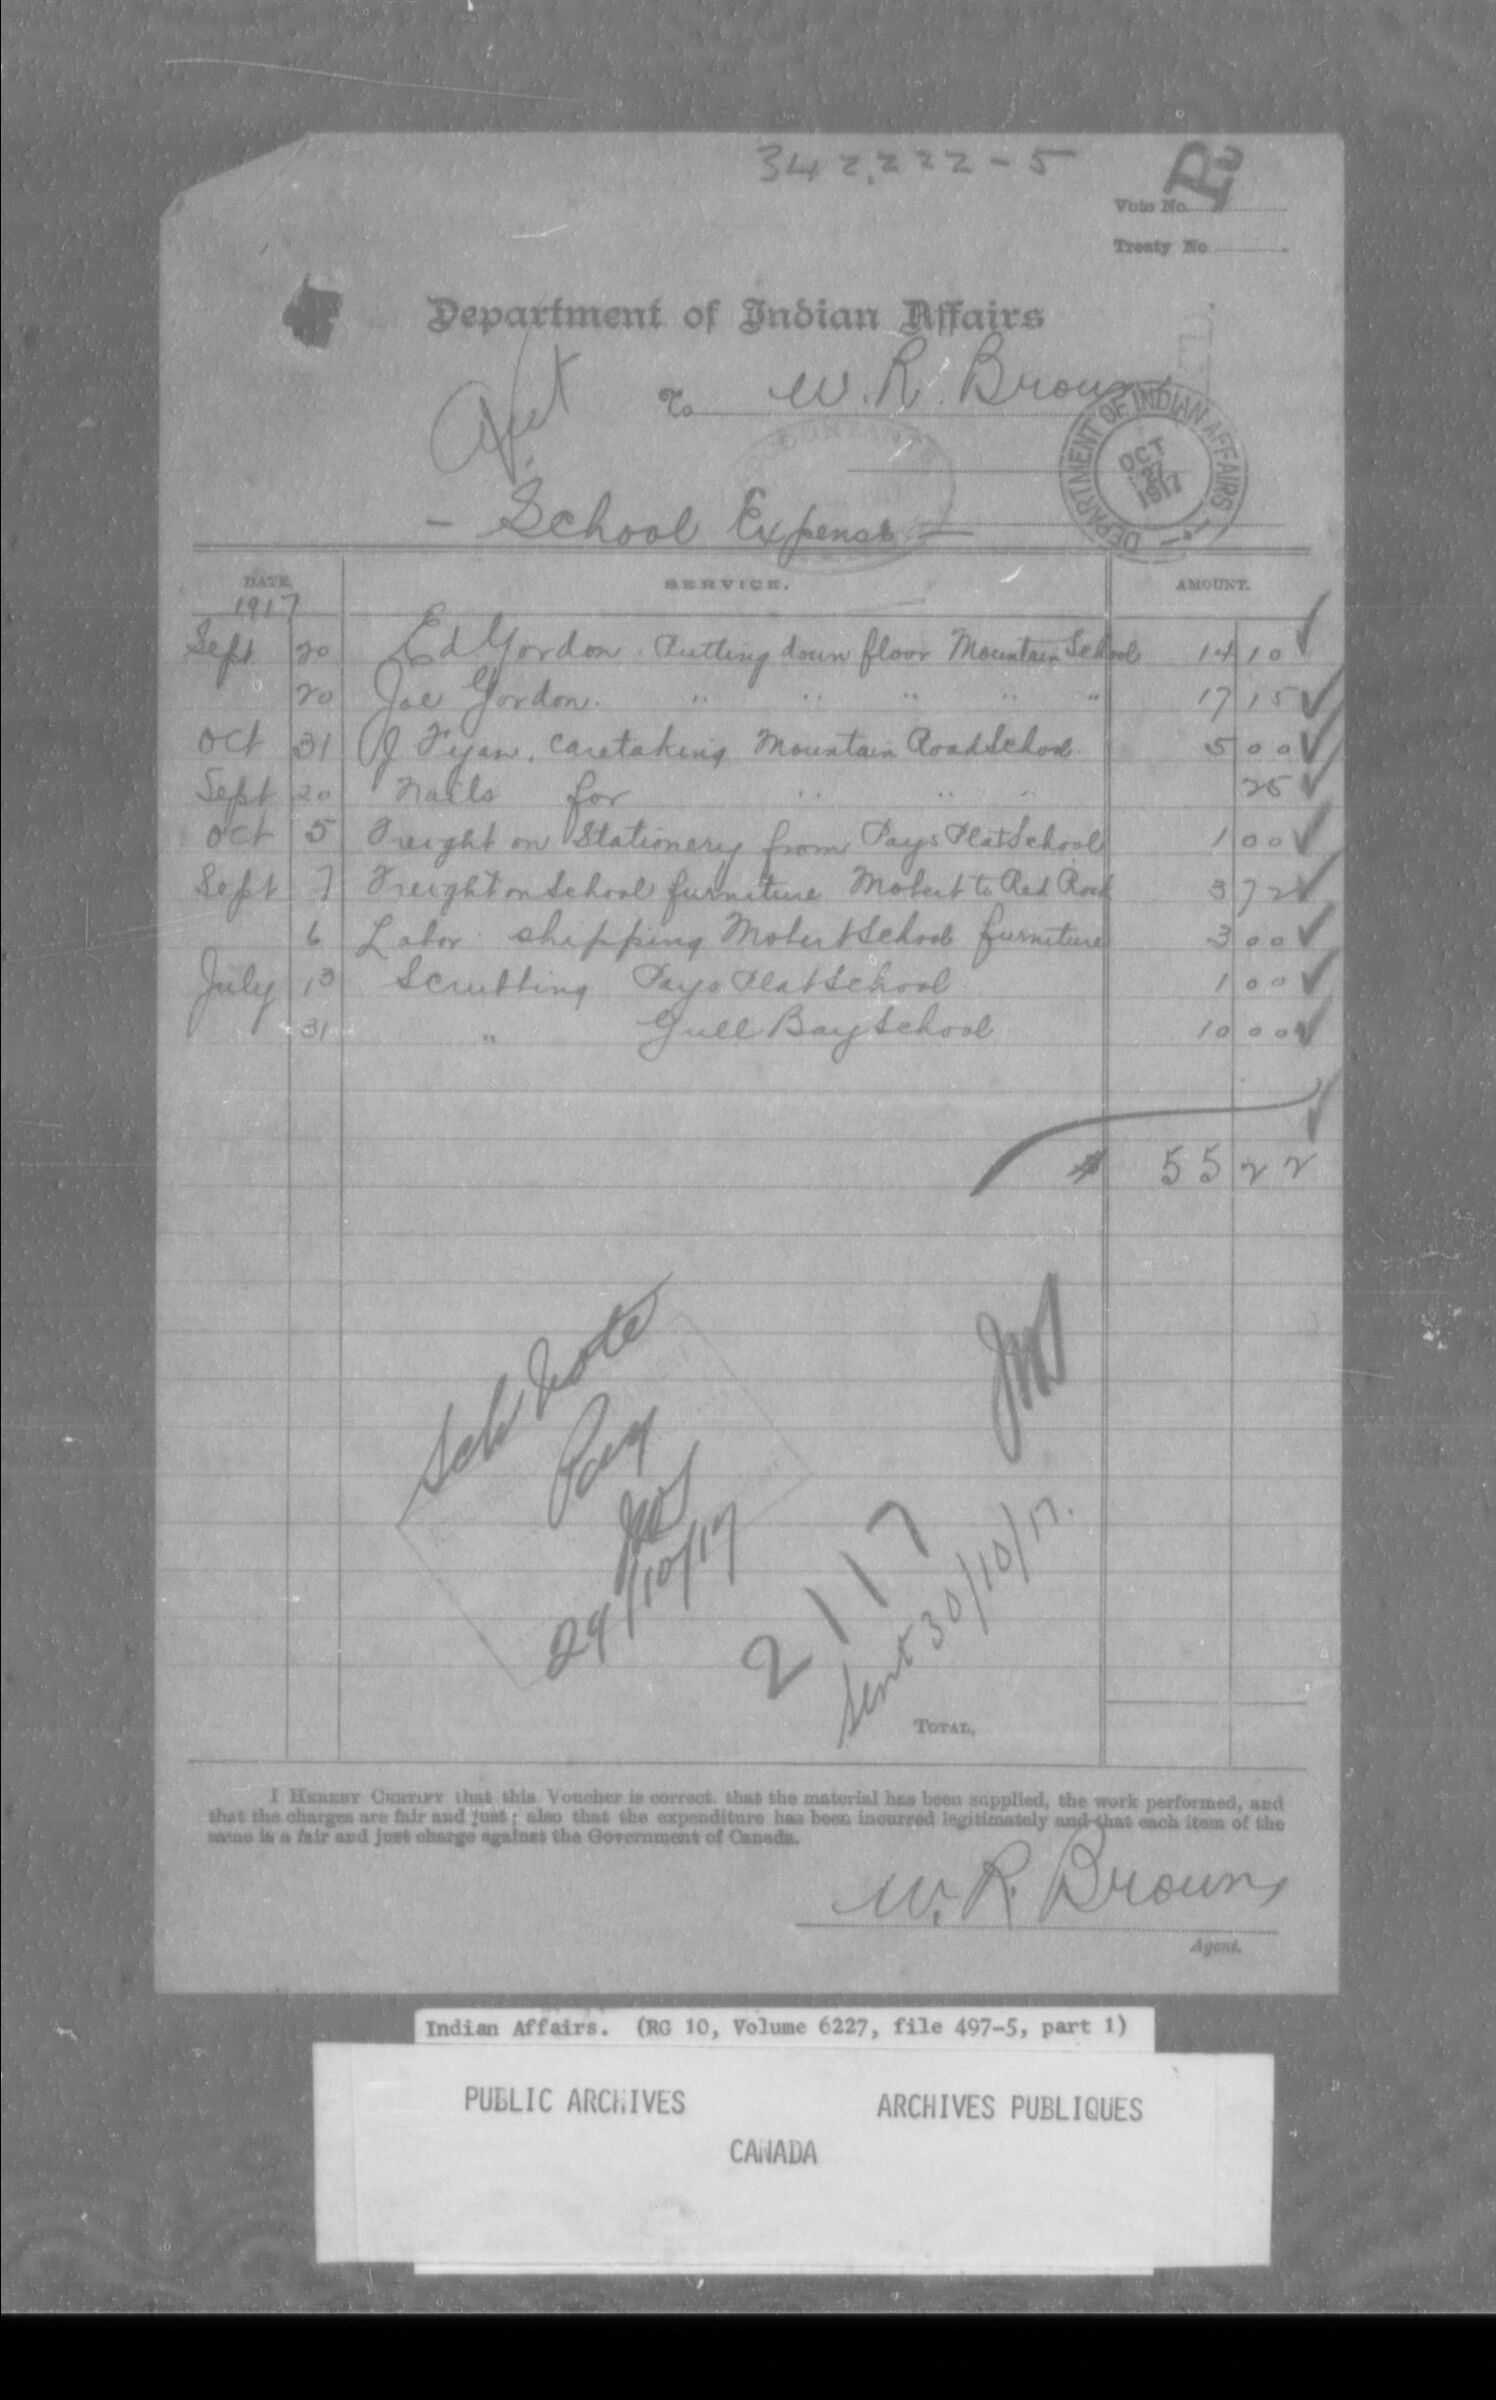 342,222-5
R
Vote No.
Treaty No.
Department of Indian Affairs
To W. R. Brown
DEPARTMENT OF INDIAN AFFAIRS
OCT
1917
- School Expense -
DATE. SERVICE. AMOUNT.
1917
Sept 20 Ed Gordon. Putting down floor Mountain School 14 10
20 Joe Gordon. " " " " " 17 15
Oct 31 J Fyan, caretaking Mountain Road School 5 00
Sept 20 Nails for " " " 25
Oct 5 Freight on Stationery from Pays Plat School 1 00
Sept 7 Freight on School furniture Mobert to Red Rock 3 72
6 Labor shipping Mobert School furniture 3 00
July 13 Scrubbing Pays Plat School 1 00
31 " Gull Bay School 10 00
$ 55 22
Sch Vote
Pay
29/10/17
2117
Sent 30/10/17.
TOTAL,
I HEREBY CERTIFY that this Voucher is correct. that the material has been supplied, the work performed, and
that the charges are fair and just; also that the expenditure has been incurred legitimately and that each item of the
same is a fair and just charge against the Government of Canada.
W. R. Brown
Agent.
Indian Affairs. (RG 10, Volume 6227, file 497-5, part 1)
PUBLIC ARCHIVES ARCHIVES PUBLIQUES
CANADA